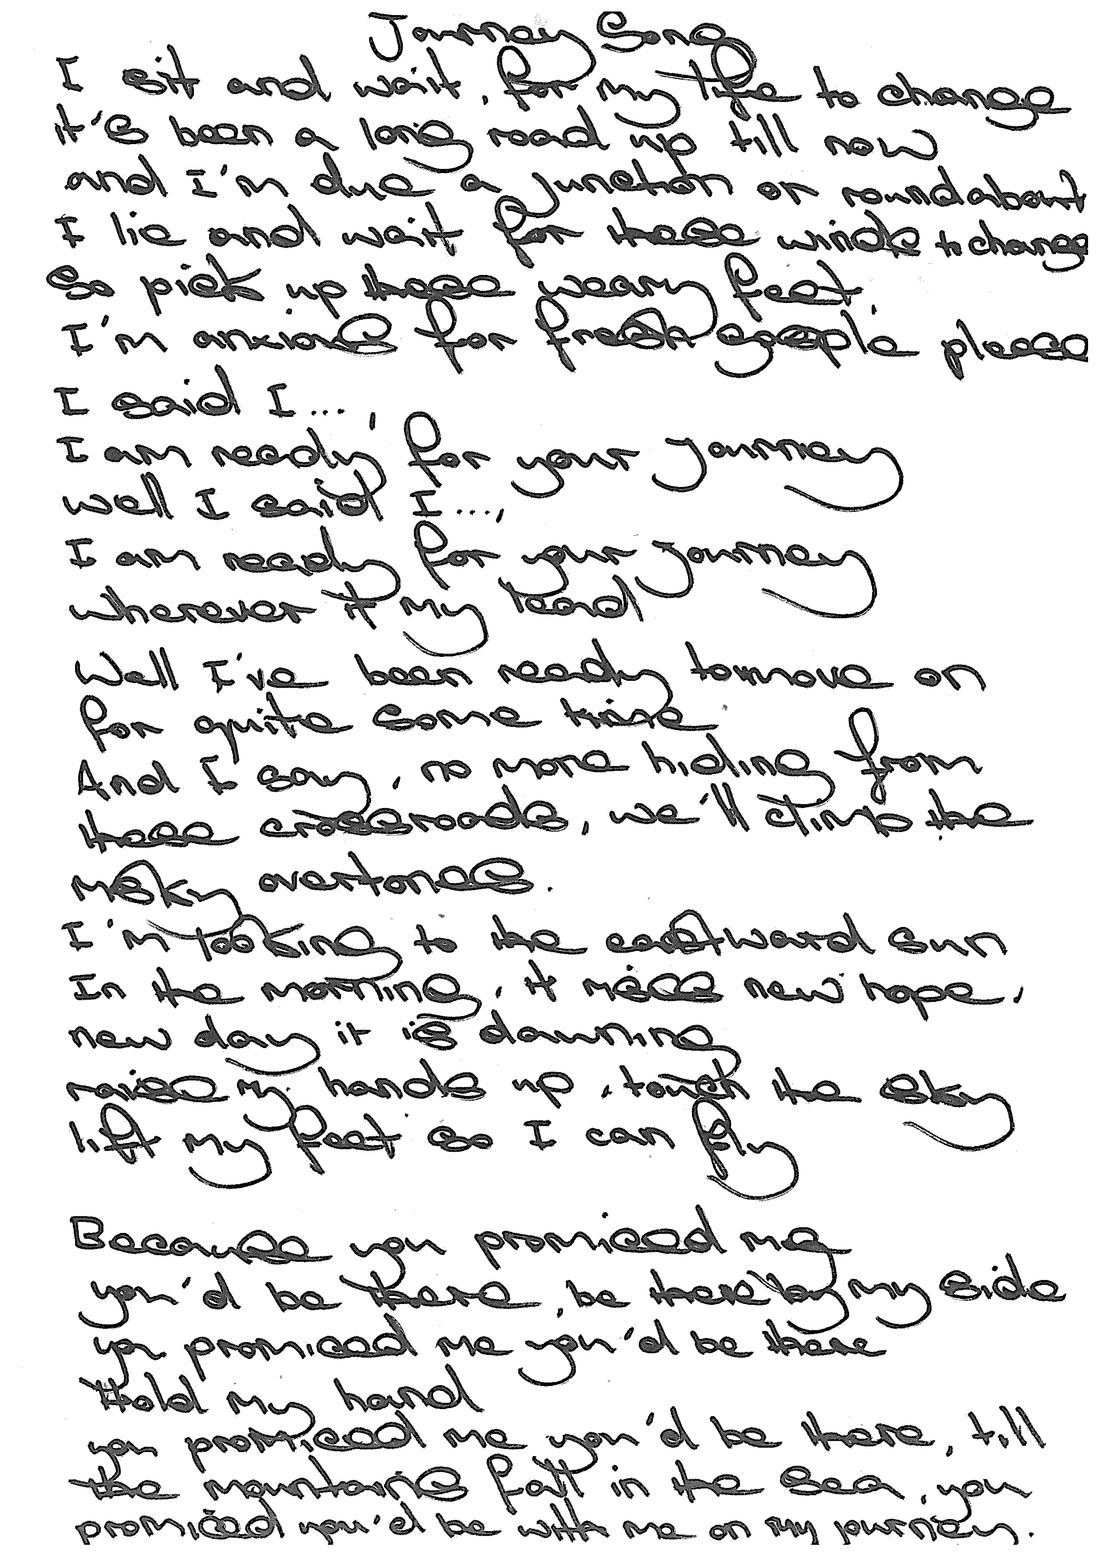 Journey Song
I sit and wait, for my life to change
it's been a long road up till now
and I'm due a junction or roundabout
I lie and wait for these winds to change
So pick up these weary feet,
I'm anxious for fresh please
I said I ...,
I am ready for your journey
well I said I ...,
I am ready for your journey
wherever it my lead
Well I've been ready to move on
for quite some time
And I say, no more hiding from
these crossroads, we'll climb the
overtones.
I'm looking to the eastward sun
In the morning, it new hope,
new day it is dawning
raise my hands up, touch the sky
lift my feet so I can fly
Because you promised me
you'd be there, be there by my side
you promised me you'd be there
Hold my hand
you promised me you'd be there, till
the mountains fall in the sea, you
promised you'd be with me on my journey.